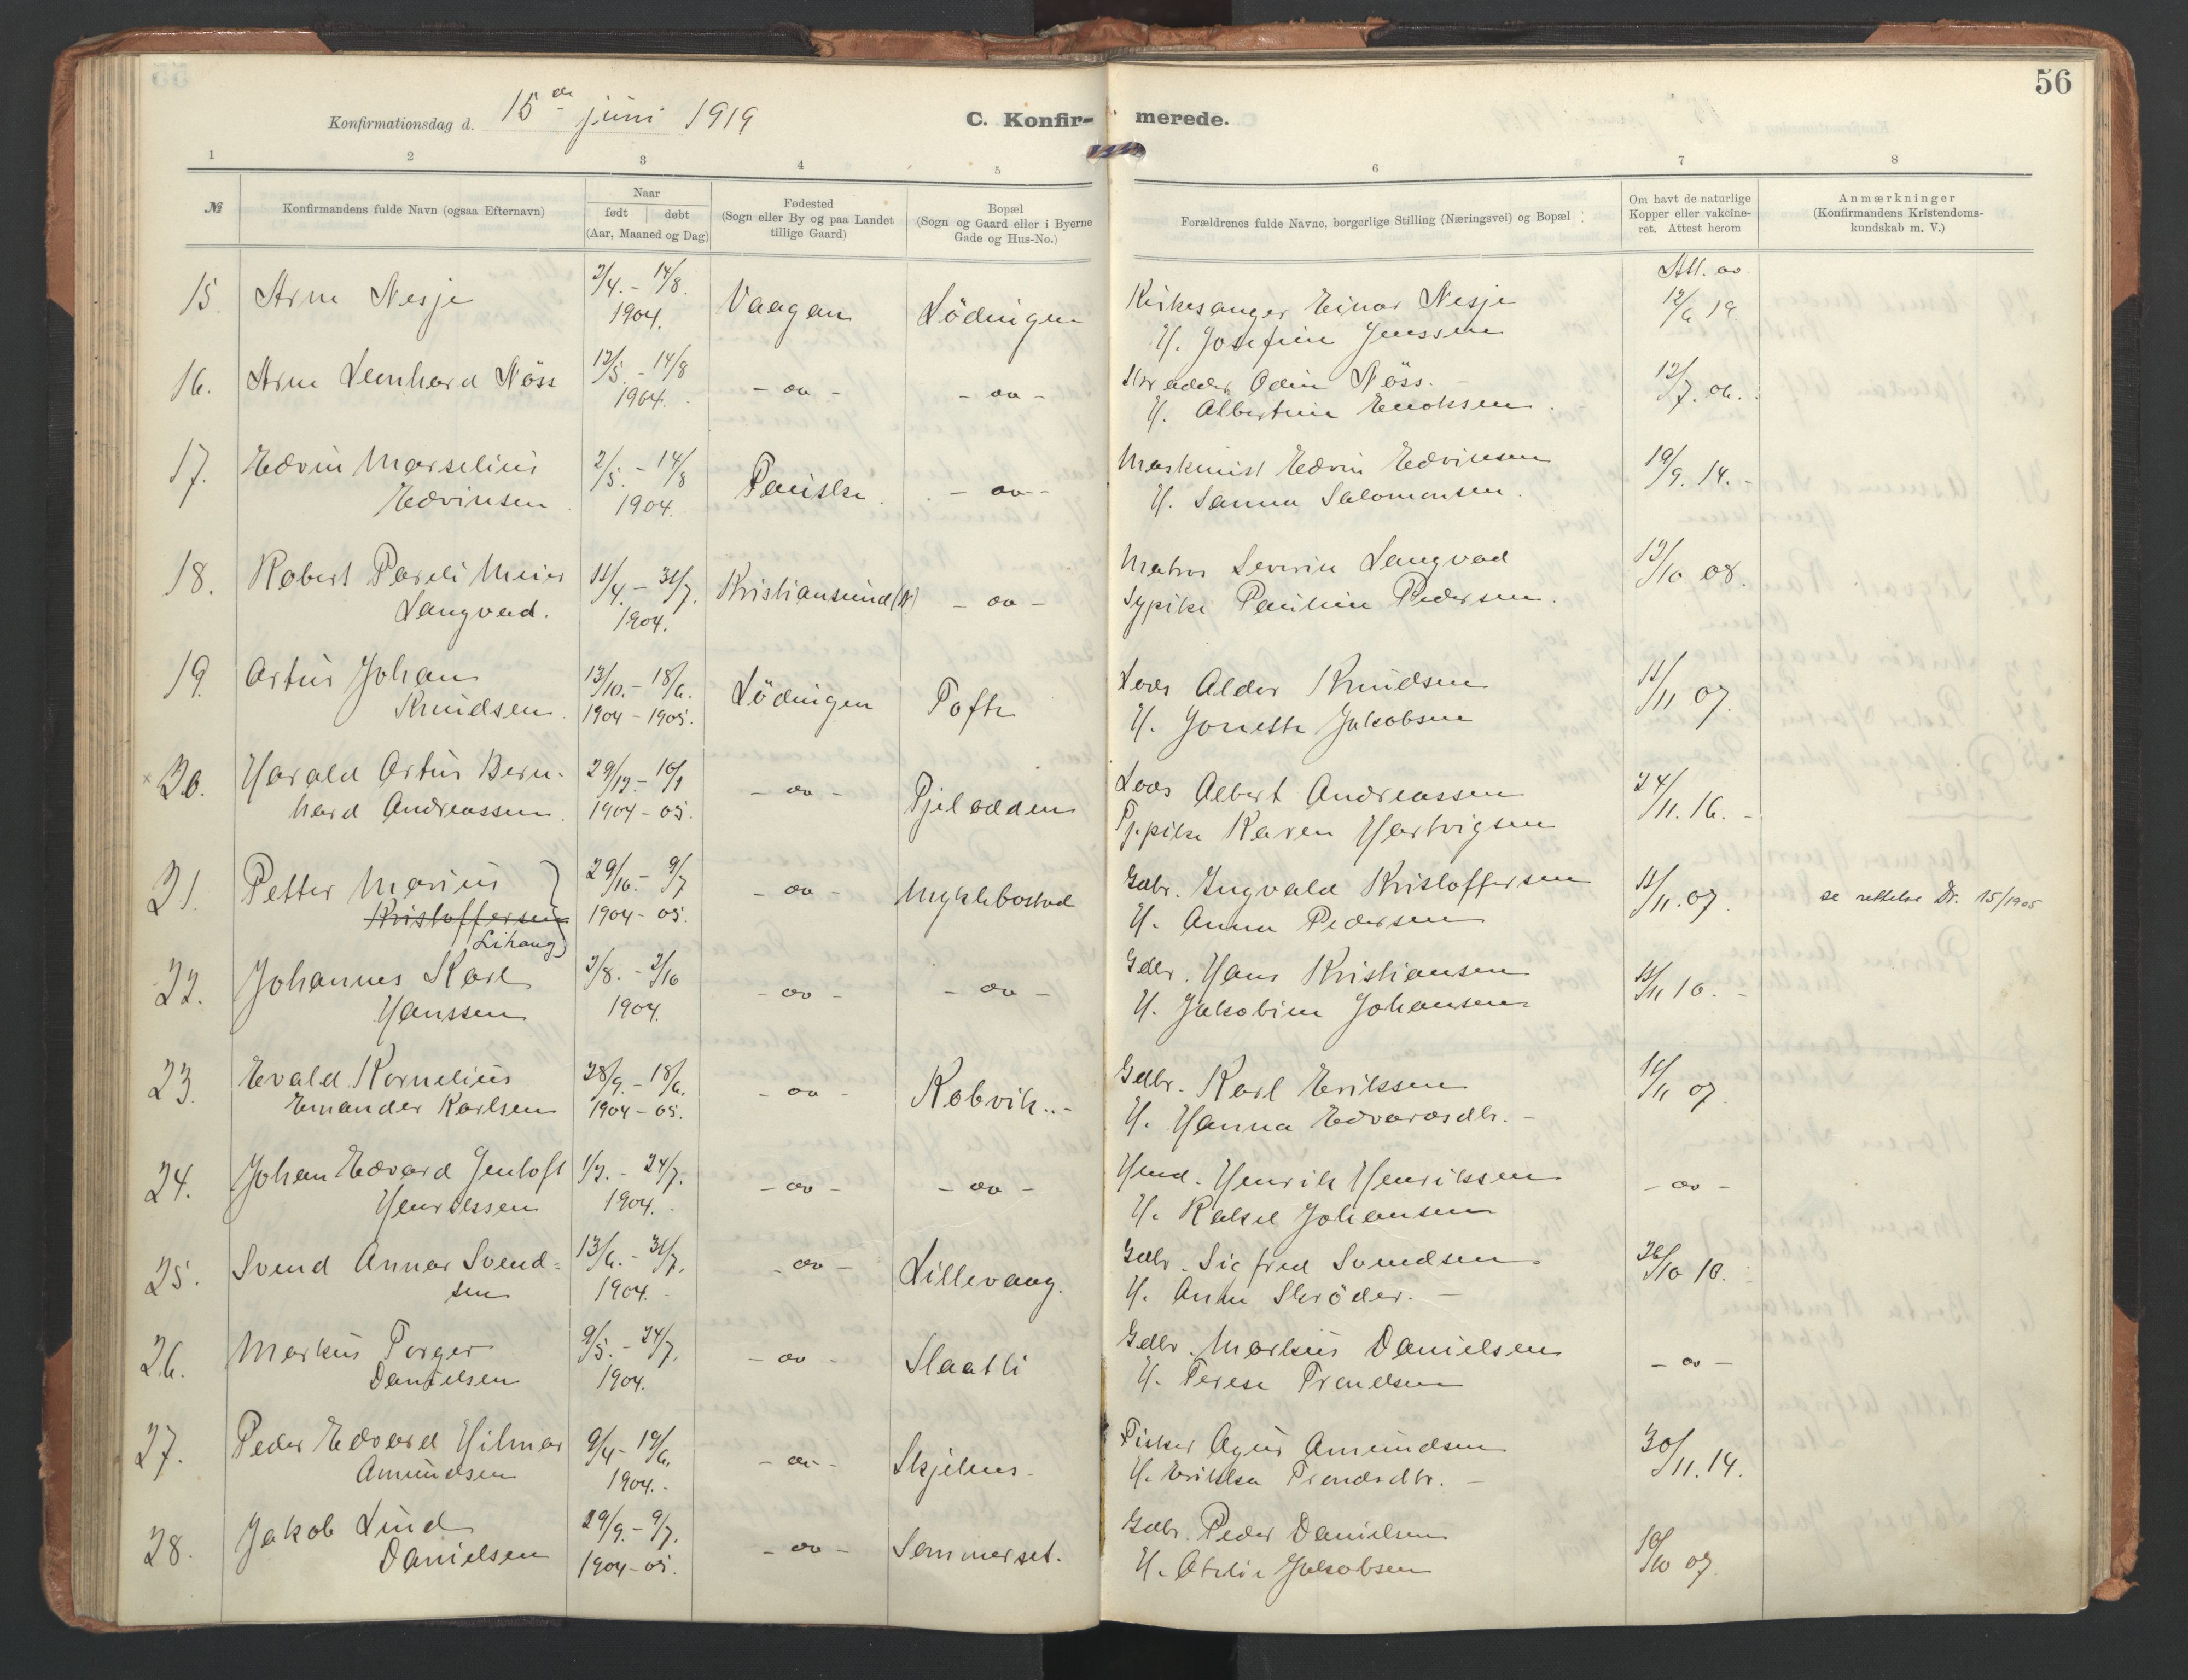 56
Konfirmationsdag d. 15de juni 1919
C. Konfir- merede.
1 2 3 4 5 6 7 8
№
Konfirmandens fulde Navn (ogsaa Efternavn)
Naar
født døbt
(Aar, Maaned og Dag)
Fødested
(Sogn eller By og paa Landet
tillige Gaard)
Bopæl
(Sogn og Gaard eller i Byerne
Gade og Hus-No.)
Forældrenes fulde Navne, borgerlige Stilling (Næringsvei) og Bopæl
Om havt de naturlige
Kopper eller vakcine-
ret. Attest herom
Anmærkninger
(Konfirmandens Kristendoms-
kundskab m. V.)
15. Arne Nesje 2/4. - 14/8. 1904. Vaagan Lödingen
Kirkesanger Einar Nesje
H. Josefine Jenssen
Att. av
12/6 19
16. Arne Leonhard Näss 12/5. - 14/8 1904. - oo - - oo -
Skredder Odin Näss.
H. Albertine Enoksen.
12/7. 06.
17. Edvin Marselius
Edvinsen
2/5. - 14/8 1904. Fauske - oo -
Maskinist Edvin Edvinsen
H. Sanna Salomonsen.
19/9. 14.
18. Robert Pareli Meier
Langvad.
11/4. - 31/7. 1904. Kristiansund (N) - oo -
Matros Severin Langvad
Sypike Pauline Pedersen.
12/10 08.
19. Artur Johan
Knudsen.
13/10. - 18/6. 1904 - 1905. Lödingen Tofte
Lods Aldor Knudsen
H. Jonette Jakobsen
11/11 07.
20. Harald Artur Bern-
hard Andreassen.
29/12. - 16/1 1904 - 05. - oo - Pjelodden
Lods Albert Andreassen
Karen Hartvigsen
24/11. 16.
21. Petter Marius
Kristoffersen
Lihaug
29/10. - 9/7 1904 - 05. - oo - Myklebostad
Gdbr. Ingvald Kristoffersen
H. Anna Pedersen
11/11. 07.
se rettelse Dr. 15/1905
22. Johannes Karl
Hanssen
2/8. - 2/10 1904. - oo - - oo -
Gdbr. Hans Kristiansen
H. Jakobine Johansen
11/11 10.
23. Evald Kornelius
Emander Karlsen
28/9. - 18/6. 1904 - 05. - oo - Kobvik.
Gdbr. Karl Erikssen
H. Hanna Edvardsdtr.
11/11 07.
24. Johan Edvard Jentoft
Henrikssen
1/2. - 24/7. 1904. - oo - - oo -
Hmd. Henrik Henrikssen
H. Rakel Johansen
- oo -
25. Svend Annar Svend-
sen
13/6. - 31/7. 1904. - oo - Lillevaag.
Gdbr. Sigfred Svendsen
H. Anna Skröder.
26/10 10.
26. Markus Torger
Danielsen
9/5. - 24/7. 1904. - oo - Slaatli
Gdbr. Markus Danielsen
H. Terese Trondsen
- oo -
27. Peder Edvard Hilmar
Amundsen
9/4 - 19/6. 1904. - oo - Skjelnes.
Fisker Agur Amundsen
H. Erikka Trondsdtr.
30/11. 14.
28. Jakob Lind
Danielsen
29/9. - 9/7. 1904 - 05. - oo - Sommerset.
Gdbr. Peder Danielsen
H. Otelie Jakobsen
10/10 07.